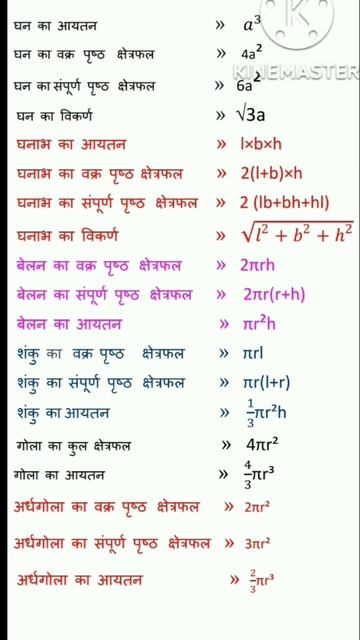 घन का आयतन » a³
घन का वक्र पृष्ठ क्षेत्रफल » 4a²
KINEMASTER
घन का संपूर्ण पृष्ठ क्षेत्रफल » 6a²
घन का विकर्ण » √3a
घनाभ का आयतन » l×b×h
घनाभ का वक्र पृष्ठ क्षेत्रफल » 2(l+b)×h
घनाभ का संपूर्ण पृष्ठ क्षेत्रफल » 2 (lb+bh+hl)
घनाभ का विकर्ण » √(l² + b² + h²)
बेलन का वक्र पृष्ठ क्षेत्रफल » 2πrh
बेलन का संपूर्ण पृष्ठ क्षेत्रफल » 2πr(r+h)
बेलन का आयतन » πr²h
शंकु का वक्र पृष्ठ क्षेत्रफल » πrl
शंकु का संपूर्ण पृष्ठ क्षेत्रफल » πr(l+r)
शंकु का आयतन » 1/3 πr²h
गोला का कुल क्षेत्रफल » 4πr²
गोला का आयतन » 4/3 πr³
अर्धगोला का वक्र पृष्ठ क्षेत्रफल » 2πr²
अर्धगोला का संपूर्ण पृष्ठ क्षेत्रफल » 3πr²
अर्धगोला का आयतन » 2/3 πr³